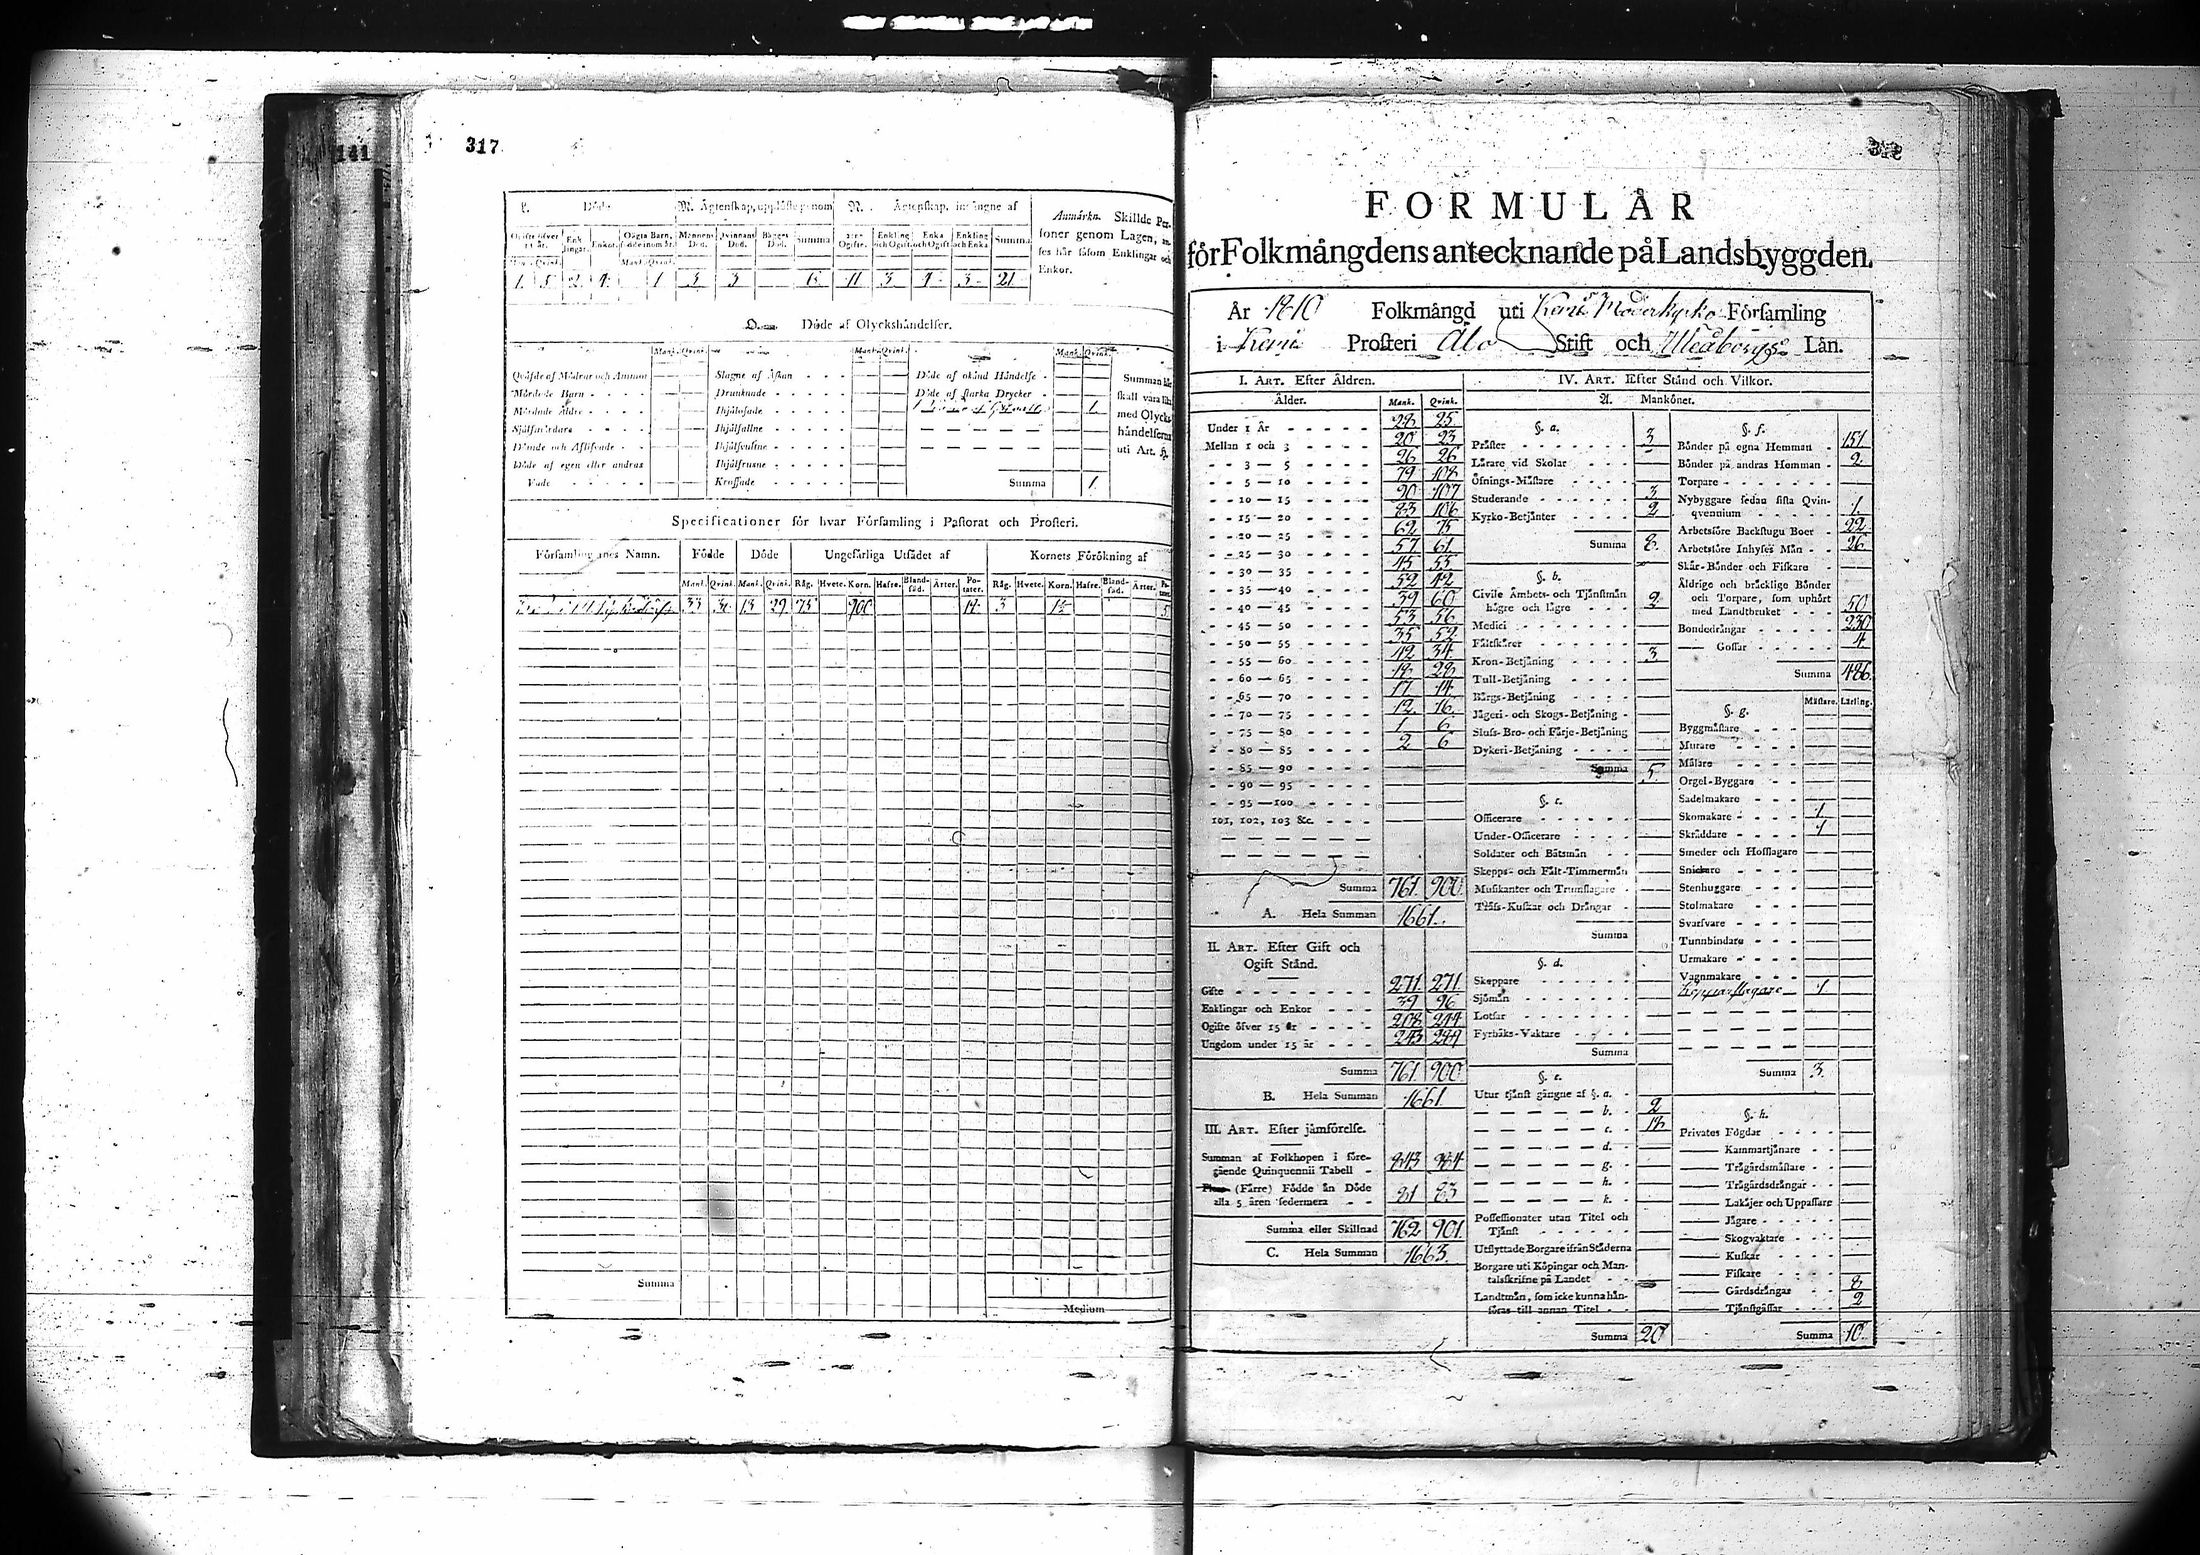 141
317
L. Döde
M. Ägtenskap, upplöste genom
N. Ägtenskap, ingångne af
Anmärkn. Skillde Per-
soner genom Lagen, an-
ses här såsom Enklingar och
Enkor.
Enk-
lingar.
Enkor.
Oägta Barn,
Mannens
Död.
Qvinnans
Död.
Summa
Ogifte.
Enkling
och Ogift.
Enka
och Ogift
Enkling
och Enka
Summa
Mank. Qvink.
1. 5. 2. 4. 1 3 3 11 3 4 3 21
O. Döde af Olyckshändelser.
Mank. Qvink. Mank. Qvink. Mank. Qvink.
Qväfde af Mödrar och Ammor
Mördade Barn
Mördade Äldre
Självmördare
Döde af egen eller andras
Vade
Slagne af Åskan
Drunknade
Ihjälfallne
Ihjälfrusne
Krossade
Döde af okänd Händelse
Döde af starka Drycker
1.
Summa 1.
Summan här
skall vara lika
med Olycks-
händelserna
uti Art. H.
Specificationer för hvar Församling i Pastorat och Prosteri.
Församlingarnes Namn. Födde Döde Ungefärliga Utsädet af Kornets Förökning af
Mank. Qvink. Mank. Qvink. Råg. Hvete. Korn. Hafre. Bland-säd. Ärter. Po-tater. Råg. Hvete. Korn. Hafre. Bland-säd. Ärter.
33 13 29 75 900 3
Summa
Medium
FORMULÄR
för Folkmängdens antecknande på Landsbyggden.
År 1810 Folkmängd uti Kemi Moderkyrko Församling
i Kemi Prosteri Åbo Stift och Uleåborgs Län.
I. ART. Efter Åldren.
Ålder. Mank. Qvink.
Under 1 År 28 25
Mellan 1 och 3 20 23
3 — 5 26 26
5 — 10 79 108
10 — 15 90 107
15 — 20 83 106
20 — 25 62 75
25 — 30 57 61
30 — 35 45 55
35 — 40 52 42
40 — 45 39 60
45 — 50 53 56
50 — 55 35 52
55 — 60 42 34
60 — 65 18 28
65 — 70 17 14
70 — 75 12 16
75 — 80 1 6
80 — 85 2 6
85 — 90
90 — 95
95 — 100
101, 102, 103 &c.
Summa 761. 900
A. Hela Summan 1661.
II. ART. Efter Gift och
Ogift Stånd.
Gifte 271. 271.
Enklingar och Enkor 39 96
Ogifte öfver 15 år 208 244
Ungdom under 15 år 243 289
Summa 761. 900
B. Hela Summan 1661
III. ART. Efter jämförelse.
Summan af Folkhopen i före-
gående Quinquennii Tabell 843 984
(Färre) Födde än Döde
alla 5 åren sedermera 81 83
Summa eller Skillnad 762 901.
C. Hela Summan 1663.
IV. ART. Efter Stånd och Vilkor.
A. Mankönet.
§. a.
Präster 3
Lärare vid Skolar
Öfnings-Mästare
Studerande 3
Kyrko-Betjänter 2
Summa 8.
§. b.
Civile Ämbets- och Tjänstmän
högre och lägre 2
Medici
Fältskärer
Kron-Betjäning 3
Tull-Betjäning
Bärgs-Betjäning
Jägeri- och Skogs-Betjäning
Sluss- Bro- och Färje-Betjäning
Dykeri-Betjäning
Summa 5.
§. c.
Officerare
Under-Officerare
Soldater och Båtsmän
Skepps- och Fält-Timmermän
Musikanter och Trumslagare
Träss-Kuskar och Drängar
Summa
§. d.
Skeppare
Sjömän
Lotsar
Fyrbåks-Vaktare
Summa
§. e.
Utur tjänst gångne af §. a.
b. 2
c. 18
d.
g.
h.
k.
Possessionater utan Titel och
Tjänst
Utflyttade Borgare ifrån Städerna
Borgare uti Köpingar och Man-
talskrifne på Landet
Landtmän, som icke kunna hän-
föras till annan Titel
Summa 20
§. f.
Bönder på egna Hemman 151
Bönder på andras Hemman 2
Torpare
Nybyggare sedan sista Qvin-
qvennium 1.
Arbetsföre Backstugu Boer 22
Arbetsföre Inhyses Män 26
Skär-Bönder och Fiskare
Äldrige och bräcklige Bönder
och Torpare, som uphört
med Landtbruket 50
Bondedrängar 230
Gossar 4
Summa 486.
Mästare. Lärling.
§. g.
Byggmästare
Murare
Målare
Orgel-Byggare
Sadelmakare
Skomakare 1
Skräddare 1
Smeder och Hofslagare
Snickare
Stenhuggare
Stolmakare
Svarfvare
Tunnbindare
Urmakare
Vagnmakare
Kopparslagare 1
Summa 3.
§. h.
Privates Fogdar
Kammartjänare
Trägårdsmästare
Trägårdsdrängar
Lakäjer och Uppassare
Jägare
Skogvaktare
Kuskar
Fiskare
Gårdsdrängar 8
Tjänstgåssar 2
Summa 10.